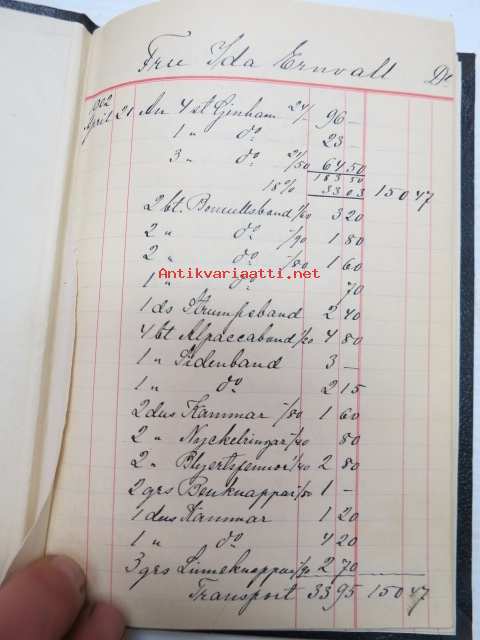 Fru Ida Ernvall Dt.
1902
April 21 An 4 st Ginham 24/- 96 –
1 " do 23 –
3 " do 21/50 64 50
183 50
18% 33 03 150 47
2 bt. Bomullsband 1/60 3 20
2 " do -/90 1 80
2 " do -/80 1 60
1 " do 70
1 ds Strumpeband 2 40
4 bt Alpaccaband 1/20 4 80
1 " Sidenband 3 –
1 " do 2 15
2 dus Kammar -/80 1 60
2 " Nyckelringar -/40 80
2 " Blyertspennor 1/40 2 80
2 grs Benknappar -/50 1 –
1 dus Kammar 1 20
1 " do 4 20
3 grs Linneknappar -/90 2 70
Transport 33 95 150 47
Antikvariaatti.net